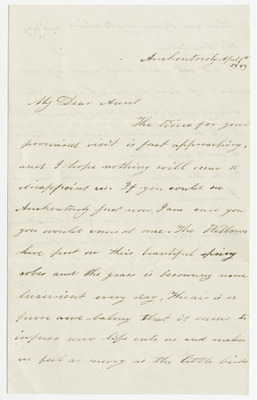 Auchentorly April 1st
1849
My Dear Aunt
The time for your
promised visit is fast approaching,
and I hope nothing will occur to
disappoint us. If you could see
Auchentorly just now, I am sure you
you would come at once. The Willows
have put on their beautiful spring
robes and the grass is becoming more
luxuriant every day, The air is so
pure and balmy that it seems to
infuse new life into us and makes
us feel as merry as the little birds